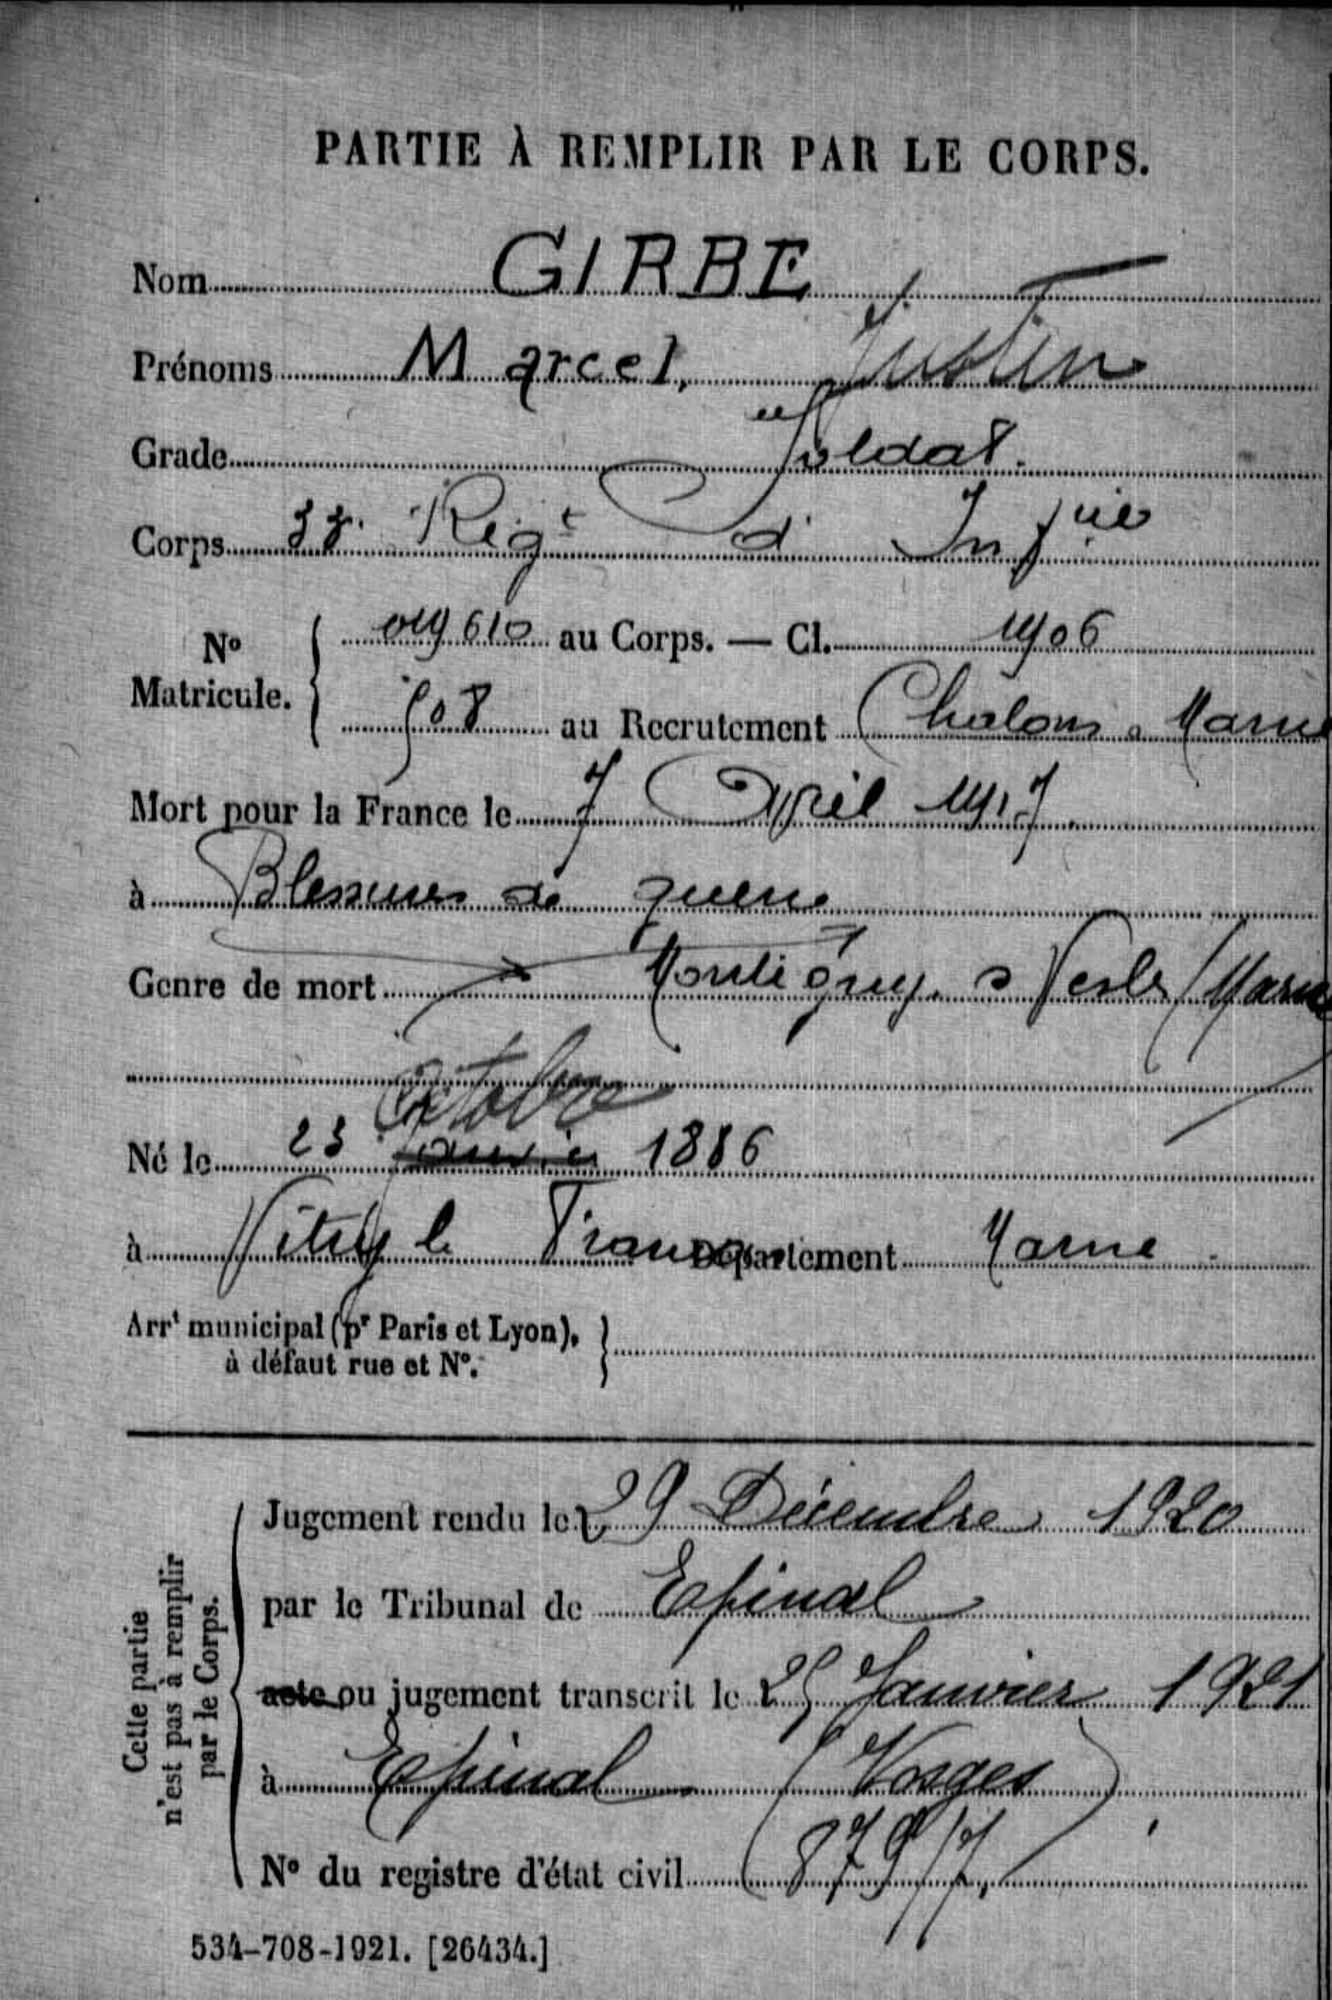 PARTIE À REMPLIR PAR LE CORPS.
Nom GIRBE
Prénoms Marcel, Justin
Grade Soldat.
Corps Régt d' Infrie
No Matricule. 019610 au Corps. — Cl. 1906
508 au Recrutement Chalons s Marne
Mort pour la France le 7 Avril 1917
à Blessures de guerre
Genre de mort Montigny s Vesle (Marne
Octobre
Né le 23 Janvier 1886
à Vitry le François Département Marne
Arrt municipal (pr Paris et Lyon),
à défaut rue et No.
Cette partie
n'est pas à remplir
par le Corps.
Jugement rendu le 29 Décembre 1920
par le Tribunal de Epinal
acte ou jugement transcrit le 25 Janvier 1921
à Epinal (Vosges)
No du registre d'état civil (879/7.)
534-708-1921. [26434.]